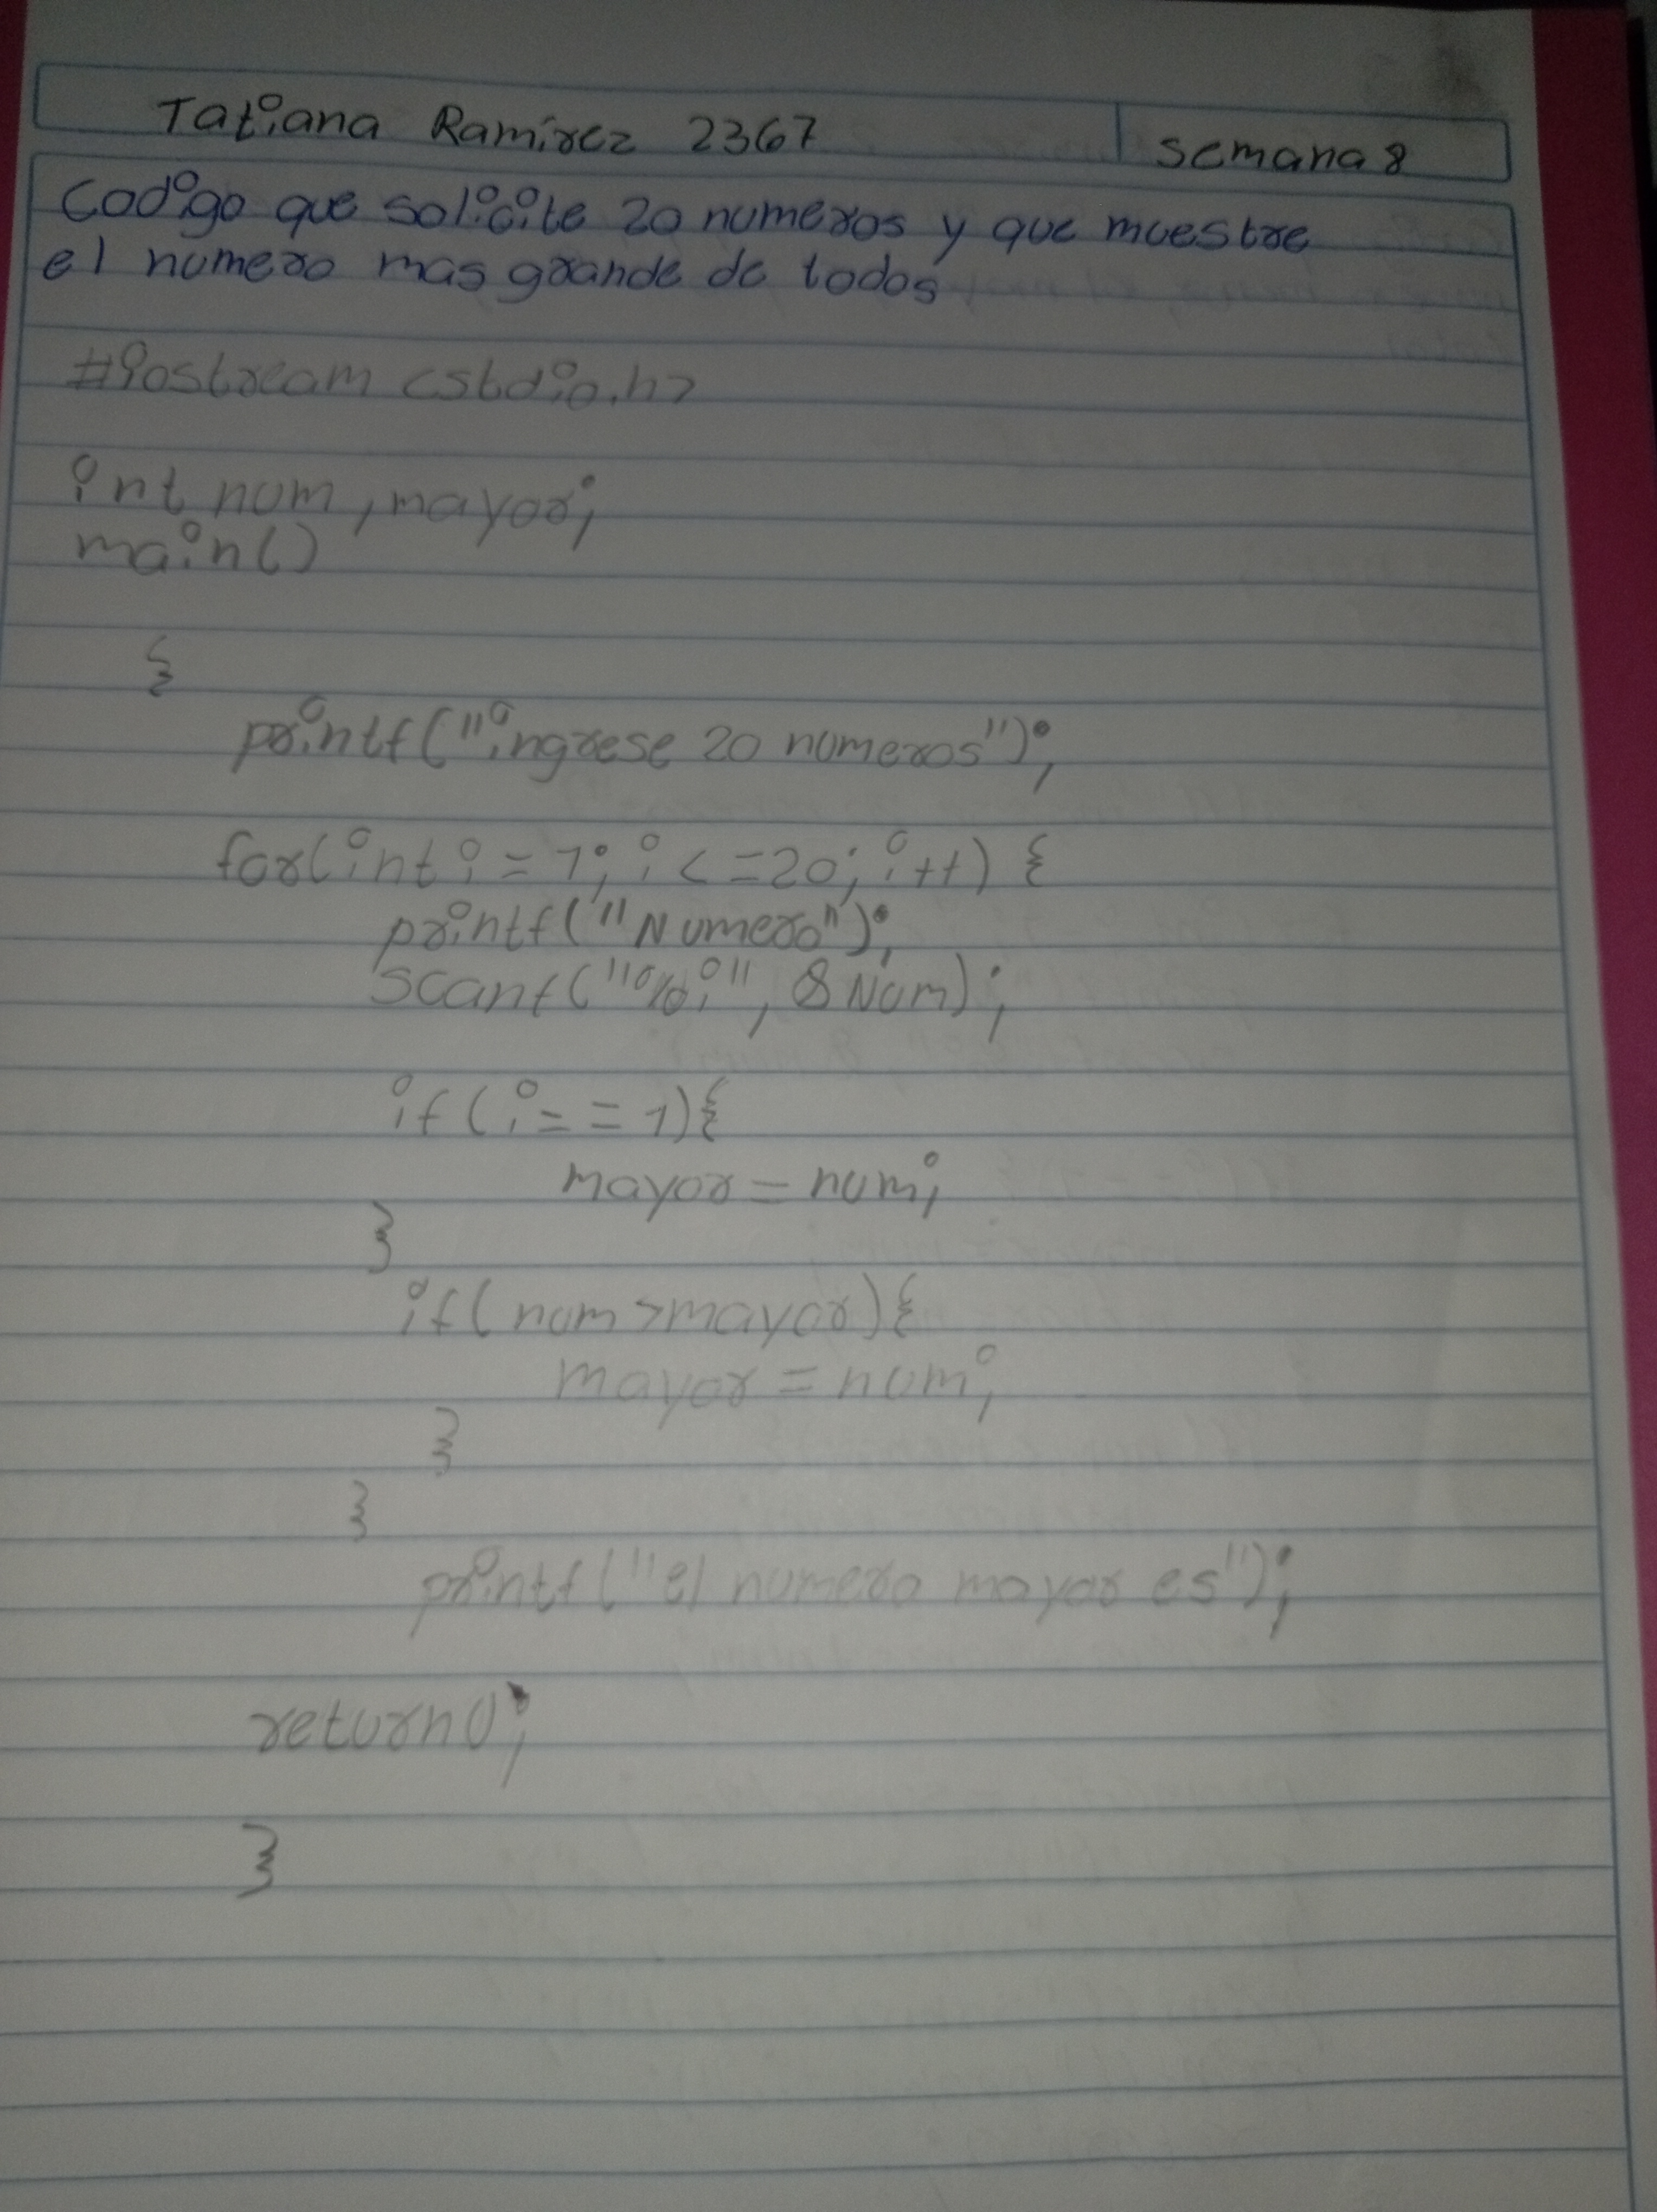 Tatiana Ramírez 2367
semana 8
Codigo que solicite 20 numeros y que muestre
el numero mas grande de todos
#iostream <stdio.h>
int num, mayor;
main()
{
printf("ingrese 20 numeros");
for(int i = 1; i <=20; i++) {
printf("Numero");
scanf("%i", &Num);
if(i == 1){
mayor = num;
}
if(num >mayor){
mayor = num;
}
}
printf("el numero mayor es");
return 0;
}